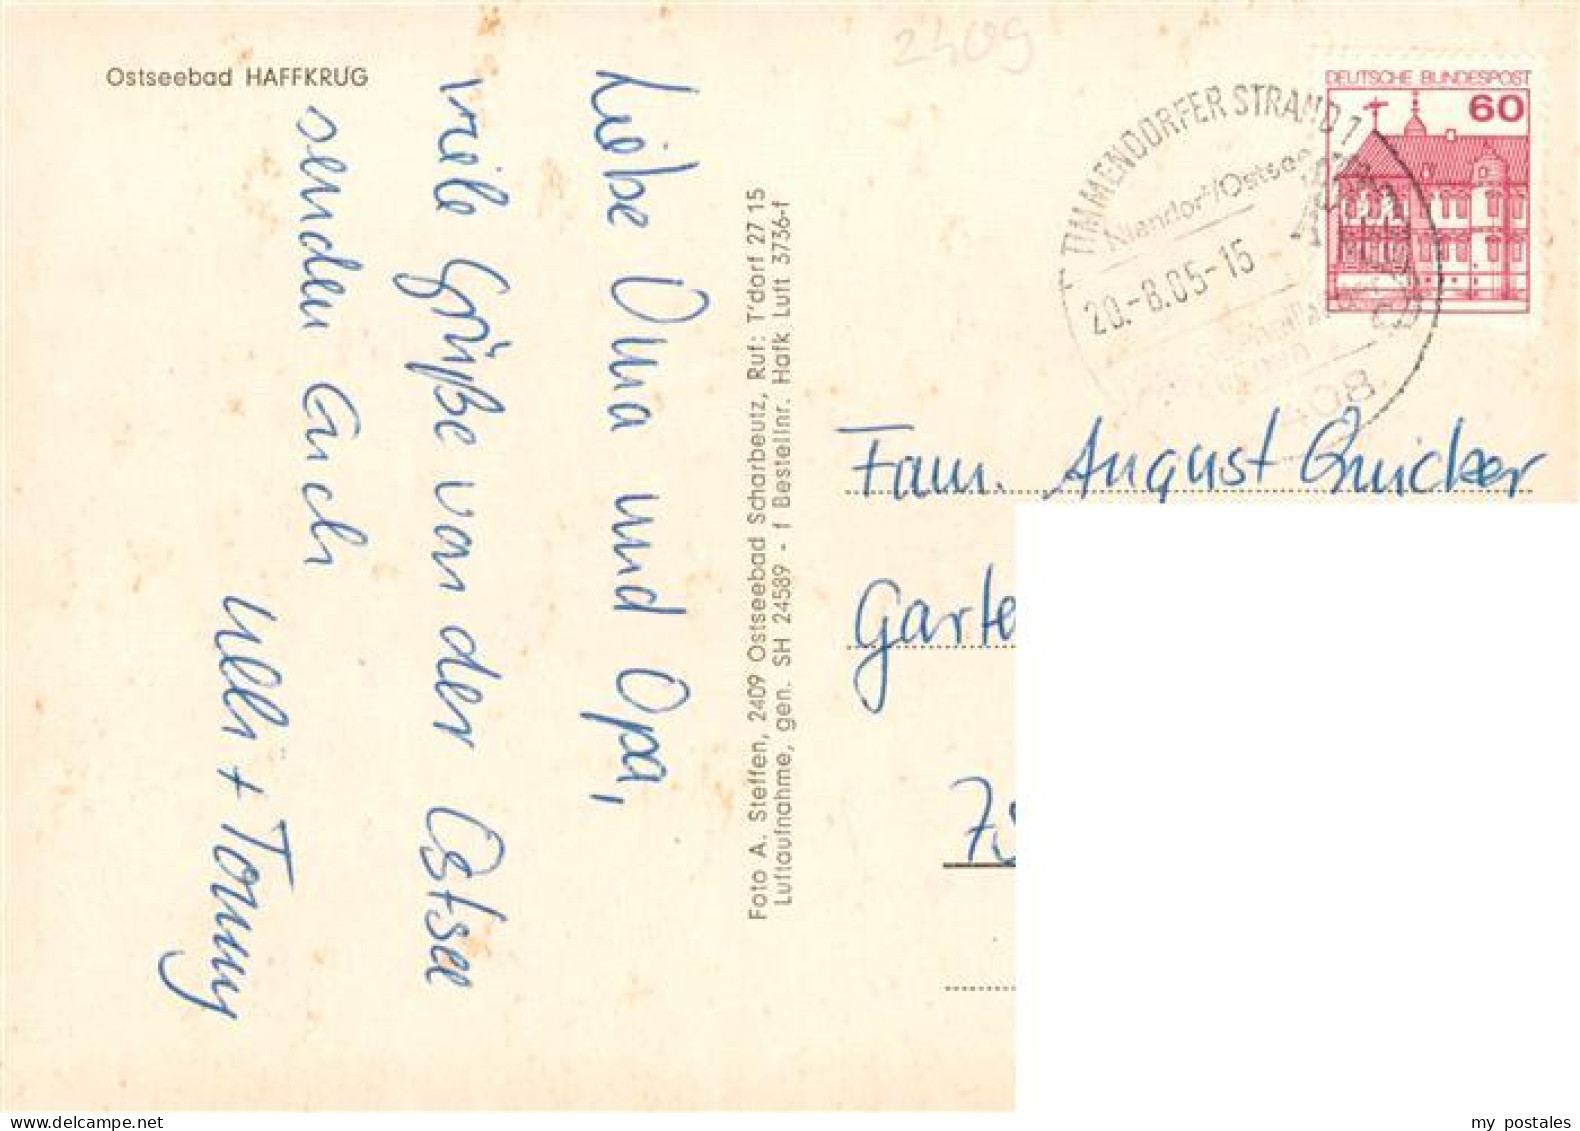 Ostseebad HAFFKRUG
Liebe Oma und Opa,
viele Grüße von der Ostsee
senden Euch
Ulli + Tommy
Foto A. Steffen, 2409 Ostseebad Scharbeutz, Ruf: T'dorf 27 15
Luftaufnahme, gen. SH 24589 - f Bestellnr. Hafk Luft 3736-f
2409
TIMMENDORFER STRAND 1
Niendorf/Ostsee
20.-8.05-15
DEUTSCHE BUNDESPOST
60
Fam. August Quicker
Garte
my postales